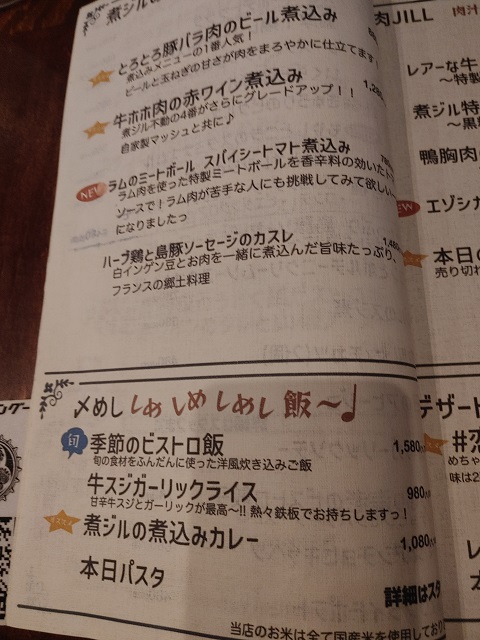 煮ジルの
とろとろ豚バラ肉のビール煮込み
煮込みメニューの1番人気!
ビールと玉ねぎの甘さが肉をまろやかに仕立てます
牛ホホ肉の赤ワイン煮込み
煮ジル不動の4番がさらにグレードアップ!!
自家製マッシュと共に♪
NEW
ラムのミートボール スパイシートマト煮込み
ラム肉を使った特製ミートボールを香辛料の効いた
ソースで!ラム肉が苦手な人にも挑戦してみて欲しい
になりましたっ
ハーブ鶏と島豚ソーセージのカスレ
白インゲン豆とお肉を一緒に煮込んだ旨味たっぷり、
フランスの郷土料理
〆めし しめしめしめし 飯〜♩
旬 季節のビストロ飯 1,580
旬の食材をふんだんに使った洋風炊き込みご飯
牛スジガーリックライス 980
甘辛牛スジとガーリックが最高〜!! 熱々鉄板でお持ちしますっ!
煮ジルの煮込みカレー 1,080
本日パスタ
詳細はスタ
当店のお米は全て国産米を使用してお
肉JILL 肉汁
レアーな牛
〜特製
煮ジル特
〜黒
鴨胸肉
エゾシカ
本日の
売り切れ
デザート
めちゃ
味は2